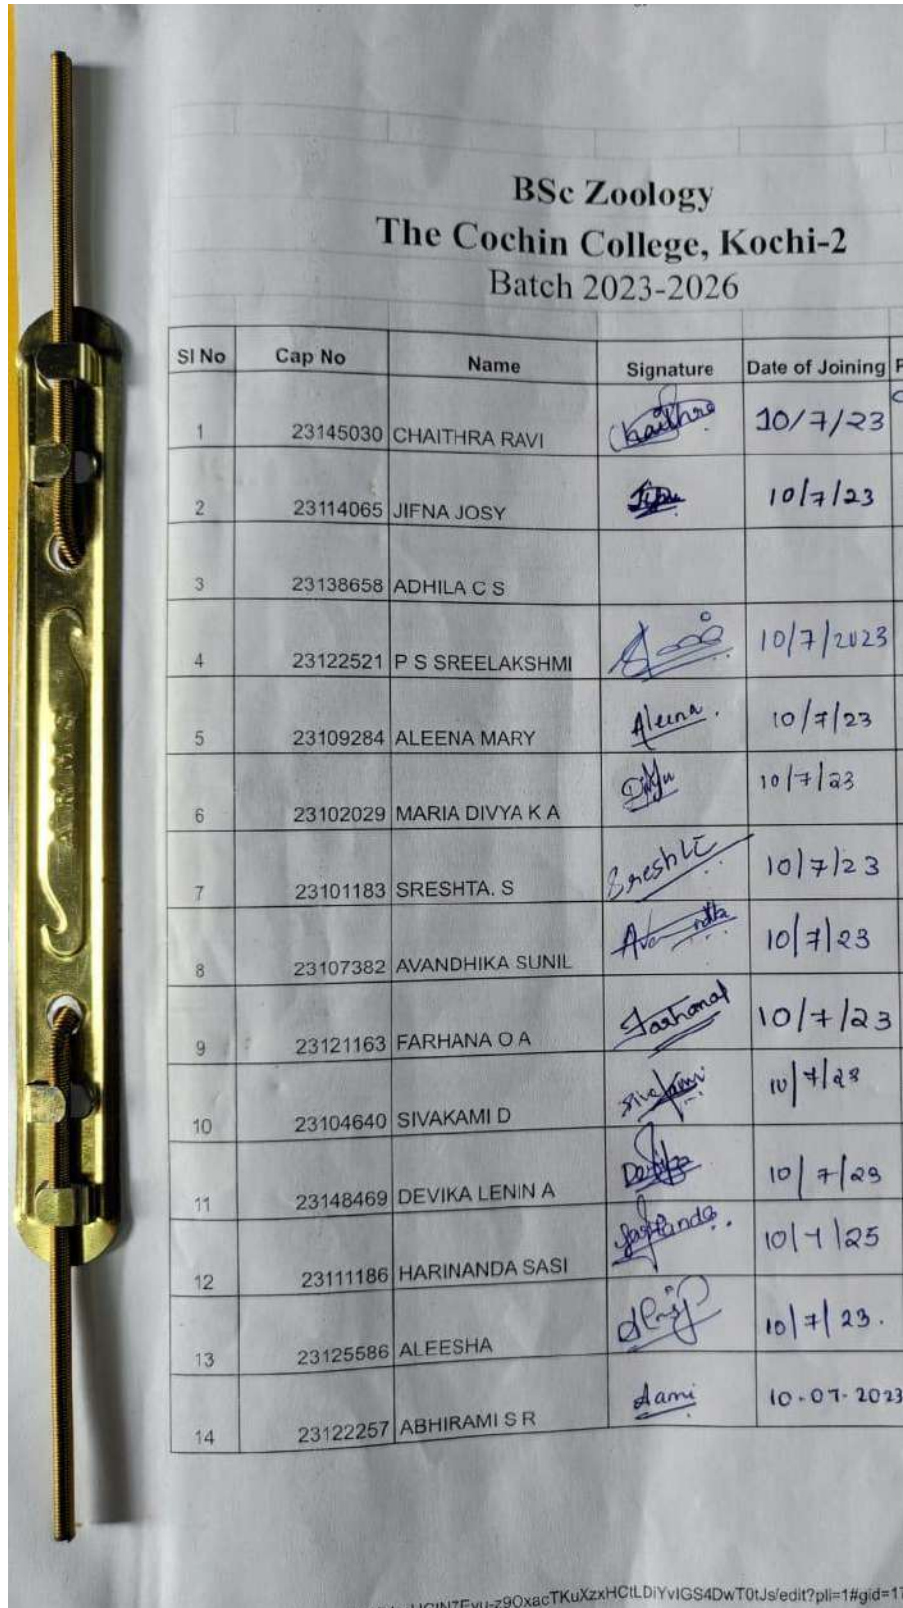 BSc Zoology
The Cochin College, Kochi-2
Batch 2023-2026
Sl No Cap No Name Signature Date of Joining
1 23145030 CHAITHRA RAVI Chaithra 10/7/23
2 23114065 JIFNA JOSY 10/7/23
3 23138658 ADHILA C S
4 23122521 P S SREELAKSHMI 10/7/2023
5 23109284 ALEENA MARY Aleena. 10/7/23
6 23102029 MARIA DIVYA K A Divya 10/7/23
7 23101183 SRESHTA. S 10/7/23
8 23107382 AVANDHIKA SUNIL 10/7/23
9 23121163 FARHANA O A 10/7/23
10 23104640 SIVAKAMI D Sivakami 10/7/23
11 23148469 DEVIKA LENIN A Devika 10/7/23
12 23111186 HARINANDA SASI 10/7/25
13 23125586 ALEESHA 10/7/23.
14 23122257 ABHIRAMI S R Aami 10-07-2023